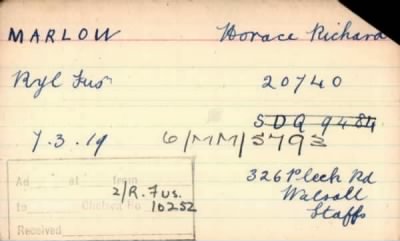 MARLOW Horace Richard
Ryl Fus 20740
SDQ 9484
7.3.19 6/MM/5793
Ad at from
2/R. Fus. 326 Pleck Rd
to Chelsea No 10252 Walsall
Received Staffs